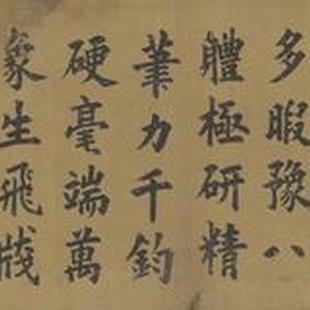 多暇豫八
體極研精
筆力千鈞
硬毫端萬
象生飛牋